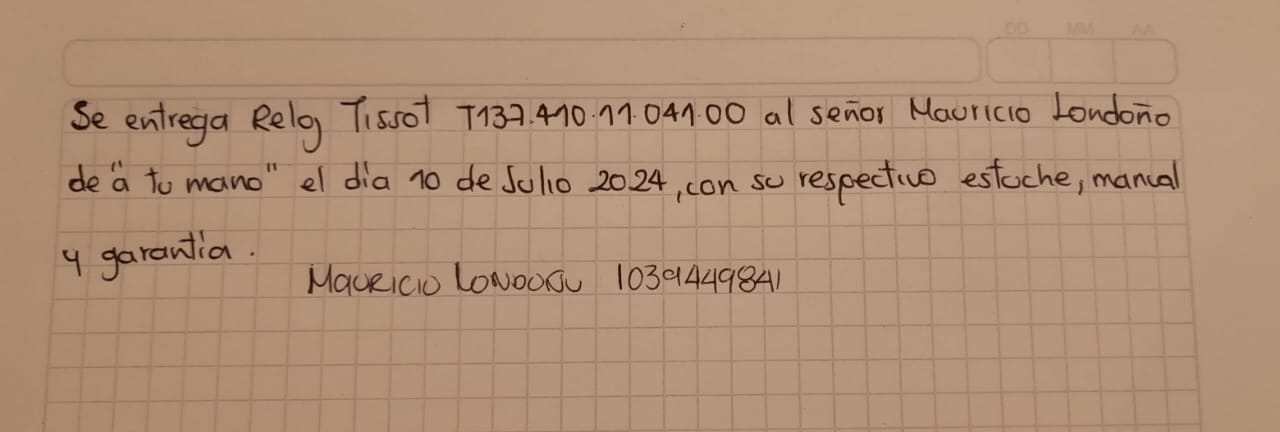 DD MM AA
Se entrega Reloj Tissot T137.410.11.041.00 al señor Mauricio Londoño
de "a tu mano" el día 10 de Julio 2024, con su respectivo estuche, manual
y garantía.
MAURICIO LONDOÑO 1039449841